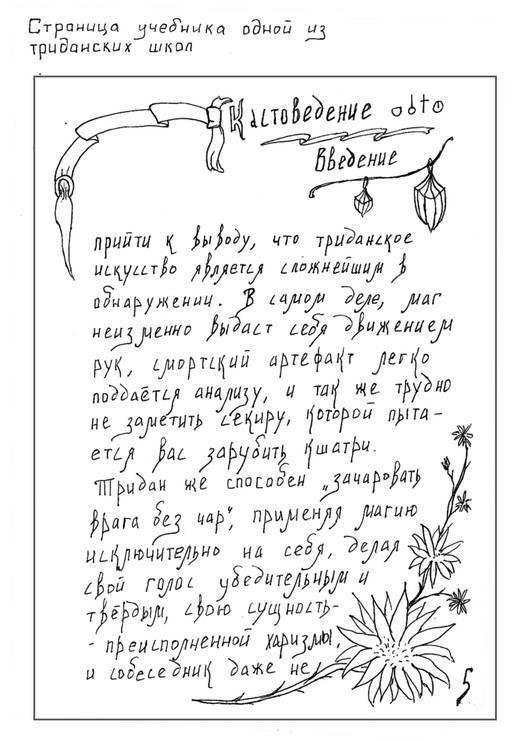 Страница учебника одной из
триданских школ
Кастоведение
Введение
прийти к выводу, что триданское
искусство является сложнейшим в
обнаружении. В самом деле, маг
неизменно выдаст себя движением
рук, смортский артефакт легко
поддаётся анализу, и так же трудно
не заметить секиру, которой пыта-
ется вас зарубить кшатри.
Тридан же способен „зачаровать
врага без чар“, применяя магию
исключительно на себя, делая
свой голос убедительным и
твёрдым, свою сущность-
- преисполненной харизмы,
и собеседник даже не
5